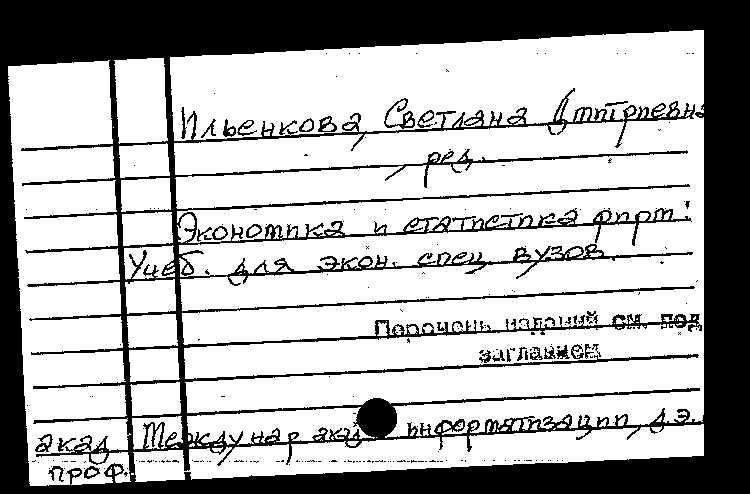 Ильенкова, Светлана Дмитриевна
, ред.
Экономика и статистика фирм:
Учеб. для экон. спец. вузов.
Перечень изданий см. под
заглавием
акад Междунар акад информатизации, д.э.
проф.